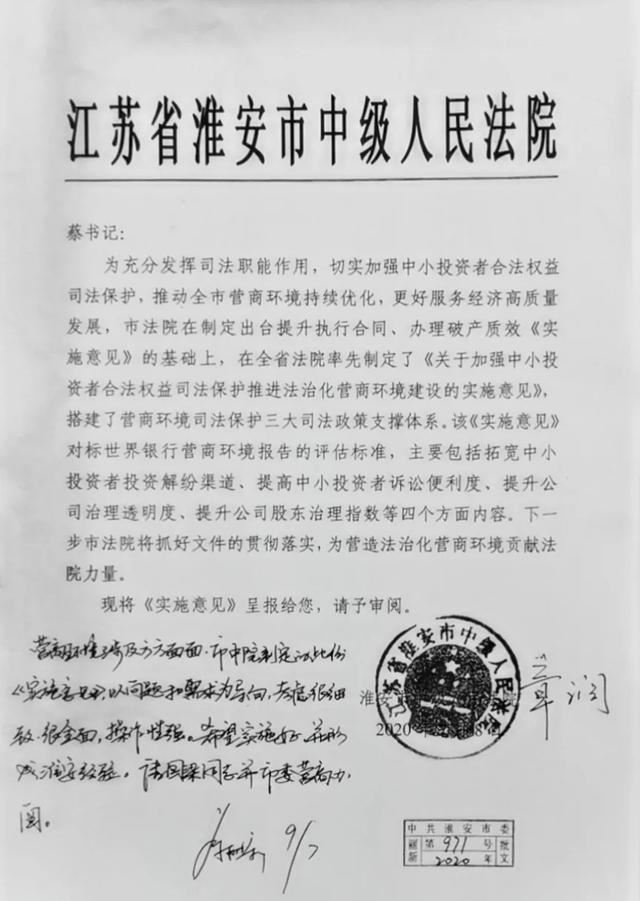 江苏省淮安市中级人民法院
蔡书记：
为充分发挥司法职能作用，切实加强中小投资者合法权益
司法保护，推动全市营商环境持续优化，更好服务经济高质量
发展，市法院在制定出台提升执行合同、办理破产质效《实
施意见》的基础上，在全省法院率先制定了《关于加强中小投
资者合法权益司法保护推进法治化营商环境建设的实施意见》，
搭建了营商环境司法保护三大司法政策支撑体系。该《实施意见》
对标世界银行营商环境报告的评估标准，主要包括拓宽中小
投资者投资解纷渠道、提高中小投资者诉讼便利度、提升公
司治理透明度、提升公司股东治理指数等四个方面内容。下一
步市法院将抓好文件的贯彻落实，为营造法治化营商环境贡献法
院力量。
现将《实施意见》呈报给您，请予审阅。
江苏省淮安市中级人民法院
淮安
2020年
章润
营商环境涉及方方面面，市中院制定这份
《实施意见》，以问题和需求为导向，考虑很细
致、很全面，操作性强。希望实施好，并形
成淮安经验。请国梁同志并市委营商办
阅。
9/7
中共淮安市委
副新第971号
2020年
批文